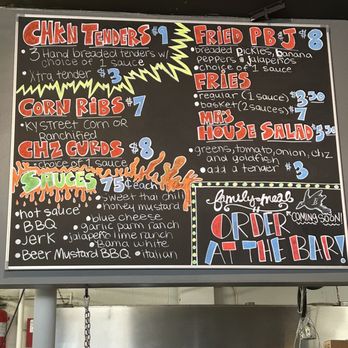 CHK'N TENDERS $9
3 Hand breaded tenders w/
choice of 1 sauce
Xtra tender $3
CORN RIBS $7
KY street corn OR
Ranchified
CHZ CURDS $8
choice of 1 sauce
SAUCES 75¢ each
• sweet thai chili
• honey mustard
• hot sauce
• blue cheese
• BBQ
• garlic parm ranch
• Jerk
• jalapeño lime ranch
• Bama white
• Beer Mustard BBQ
• italian
FRIED PB·J $8
• breaded pickles, banana
peppers & jalapeños
• choice of 1 sauce
FRIES
regular (1 sauce) $3.50
basket (2 sauces) $7
MRS
HOUSE SALAD $3.50
• greens, tomato, onion, chz
and goldfish
• add a tender $3
family-meal
COMING SOON!
ORDER
AT THE BAR!